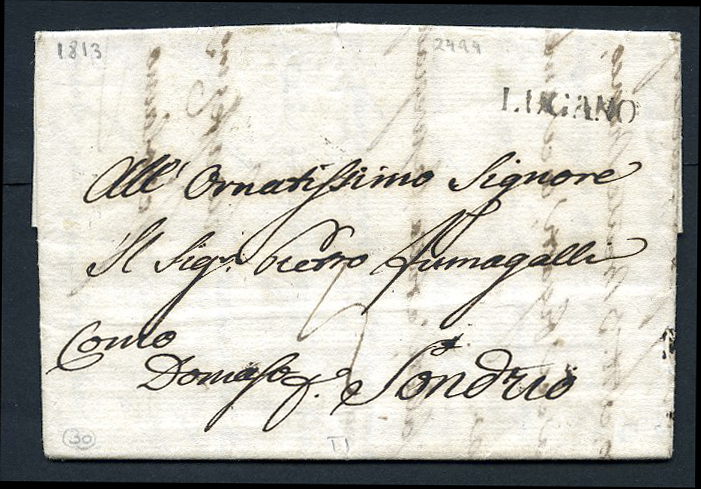 1813
2494
LUGANO
All' Ornatissimo Signore
Il Sigr. Pietro Fumagalli
Como
Domaso p. Sondrio
30
T1